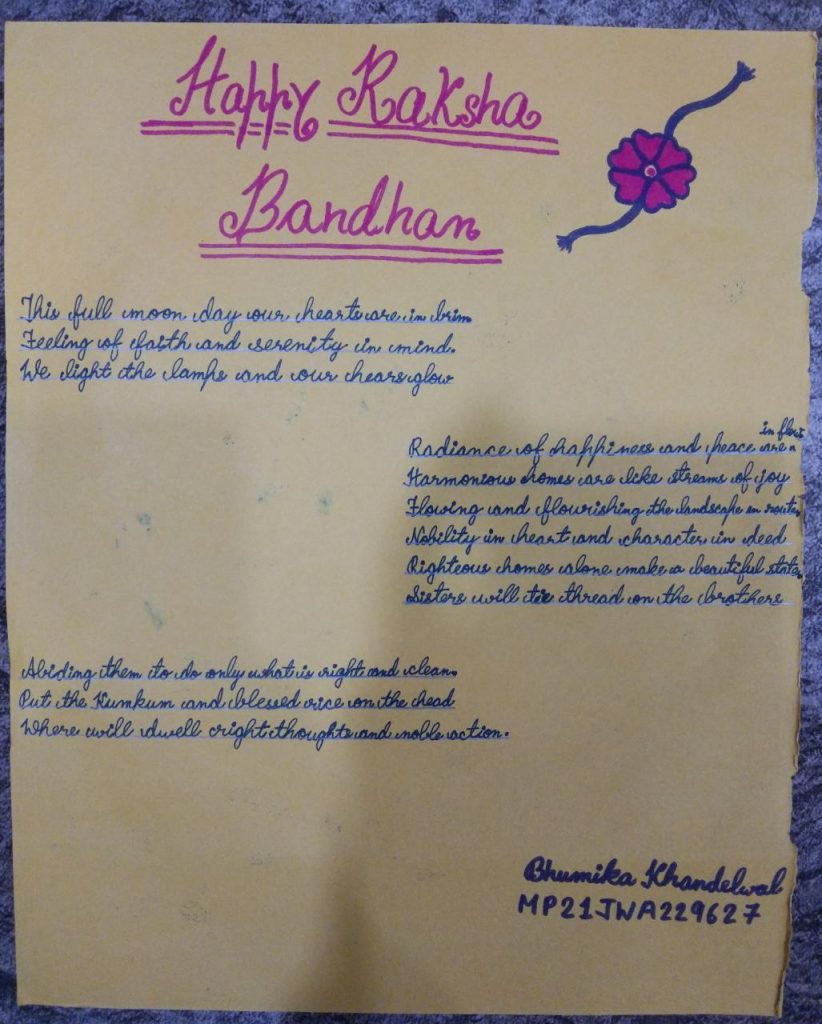 Happy Raksha
Bandhan
This full moon day our hearts are in brim
Feeling of faith and serenity in mind.
We light the lamps and our hears glow
Radiance of happiness and peace are in flow.
Harmonious homes are like streams of joy
Flowing and flourishing the landscape en route.
Nobility in heart and character in deed
Righteous homes alone make a beautiful state.
Sisters will tie thread on the brothers
Abiding them to do only what is right and clean.
Put the Kumkum and blessed rice on the head
Where will dwell right thoughts and noble action.
Bhumika Khandelwal
MP21JWA229627